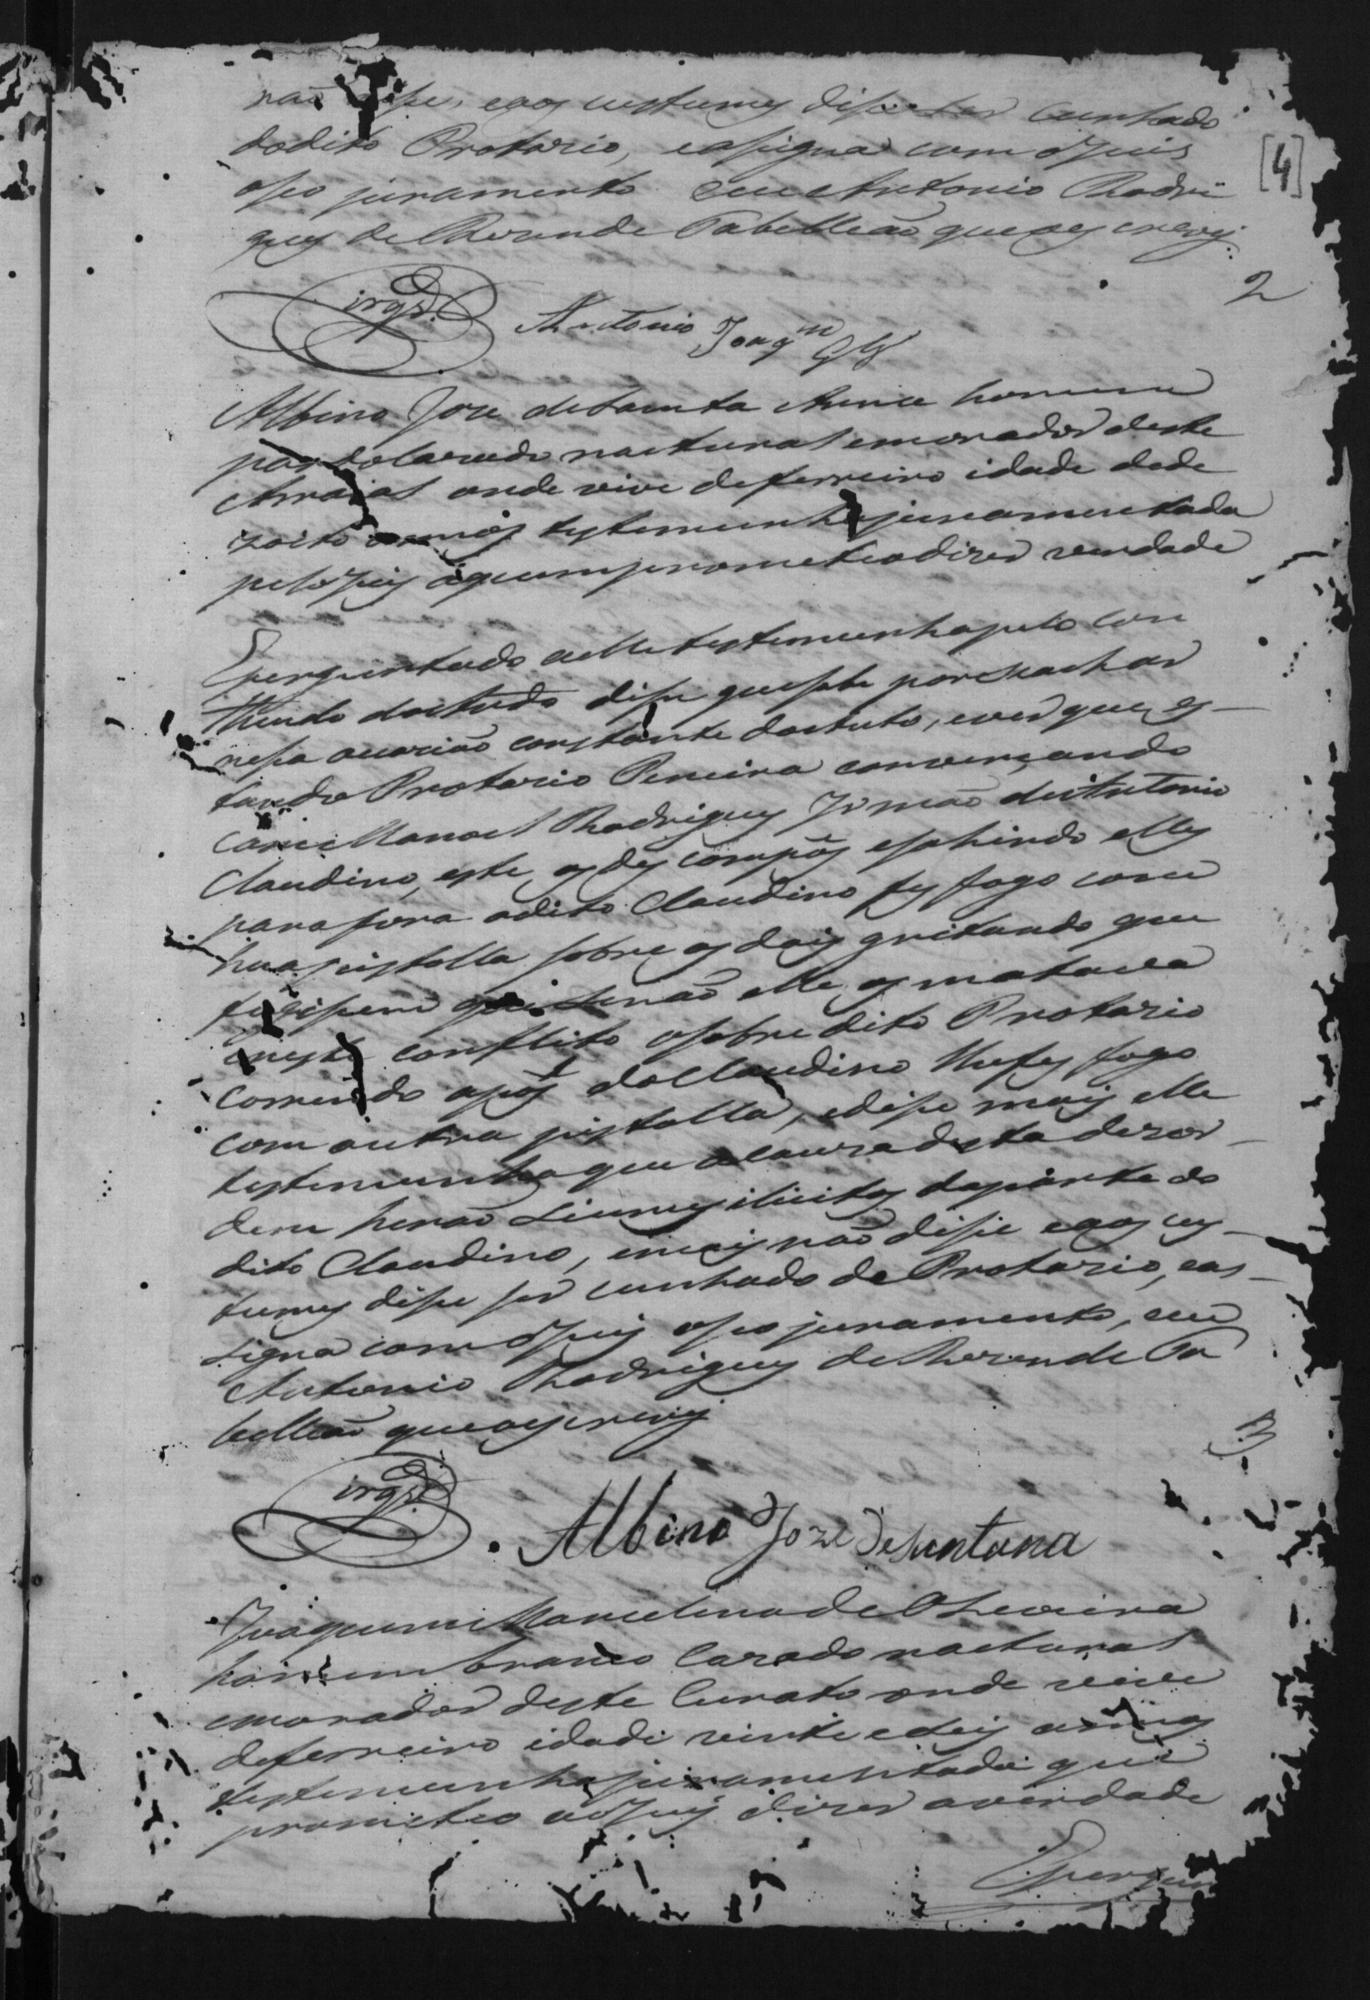 não dise, eaos custumes dise ser cunhado
do dito Protazio, easigna com o Juis
o seo juramento eeu Antonio Rodri
gues de Rezende Tabelleão que o escrevy
[4]
2
Antonio Joaqm
Albino Joze de Santa Anna homem
pardo Cazado natural emorador deste
Arraial onde vive de ferreiro idade de de
zoito annos testemunha juramentada
pelo Juis a quem prometeo dizer verdade
Eperguntado a elle testemunha pelo con
theudo do auto dise que sabe por se achar
nesa ocazião constante do auto, e ver que es-
tando Protazio Pereira conversando
com Manoel Rodrigues Irmão de Antonio
Claudino, este os des compôs esahindo elles
para fora o dito Claudino fes fogo com
hua pistolla sobre os dois gritando que
fugisem que senão elle os matava
e neste conflito o sobre dito Protazio
correndo apôs do Claudino lhe fes fogo
com outra pistolla, edise mais elle
testemunha que a cauza desta dezor-
dem herão siumes ilicitos da parte do
dito Claudino, emais não dise eaos cus-
tumes dise ser cunhado de Protazio, eas-
signa com o Juis o seo juramento, eeu
Antonio Rodrigues de Rezende Ta
belleão que o escrevy
3
Albino Joze de santana
Joaquim Marcelino de Oliveira
homem branco Cazado natural
emorador deste Curato onde vive
de ferreiro idade vinte e seis annos
testemunha juramentada que
prometeo ao Juis dizer a verdade
Epergun